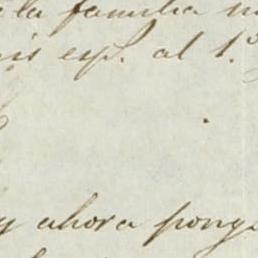 la familia
esp. al 1.º
y ahora pong